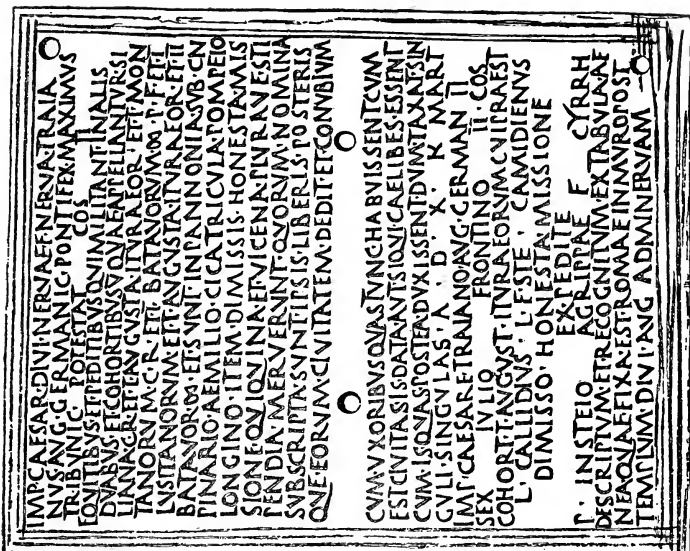 IMP·CAESAR·DIVI·NERVAE·F·NERVA·TRAIA
NVS·AVG·GERMANIC·PONTIFEX·MAXIMVS
TRIBVNIC POTESTAT COS II
EQVITIBVS·ET·PEDITIBVS·QVI·MILITANT·IN·ALIS
DVABVS·ET·COHORTIBVS·QVAE·APPELLANTVR·SI
LIANA·C·R·ET·I·AVGVSTA·ITVRAEOR·ET·I·MON
TANORVM·C·R·ET·I·BATAVORVM·∞·P·F·ET·I
LVSITANORVM·ET·I·AVGVSTA·ITVRAEOR·ET·II
BATAVOR·∞·ET·SVNT·IN·PANNONIA·SVB·CN
PINARIO·AEMILIO·CICATRICVLA·POMPEIO
LONGINO·ITEM·DIMISSIS·HONESTA·MIS
SIONE·QVI·QVINA·ET·VICENA·PLVRAVE·STI
PENDIA·MERVERVNT·QVORVM·NOMINA
SVBSCRIPTA·SVNT·IPSIS·LIBERIS·POSTERIS
QVE·EORVM·CIVITATEM·DEDIT·ET·CONVBIVM
CVM·VXORIBVS·QVAS·TVNC·HABVISSENT·CVM
EST·CIVITAS·IS·DATA·AVT·SIQVI·CAELIBES·ESSENT
CVM·IS·QVAS·POSTEA·DVXISSENT·DVM·TAXAT·SIN
GVLI·SINGVLAS·A·D·X·K·MART
IMP·CAESARE·TRAIANO·AVG·GERMAN II
SEX IVLIO FRONTINO II·COS
COHORT·I·AVGVST·ITVRAEORVM·CVI·PRAEST
L·CALLIDIVS·L·F·STE·CAMIDIENVS
DIMISSO·HONESTA·MISSIONE
EX PEDITE
P·INSTEIO AGRIPPAE F CYRRH
DESCRIPTVM·ET·RECOGNITVM·EX·TABVLA·AE
NEA·QVAE·FIXA·EST·ROMAE·IN·MVRO·POST
TEMPLVM·DIVI·AVG·AD·MINERVAM